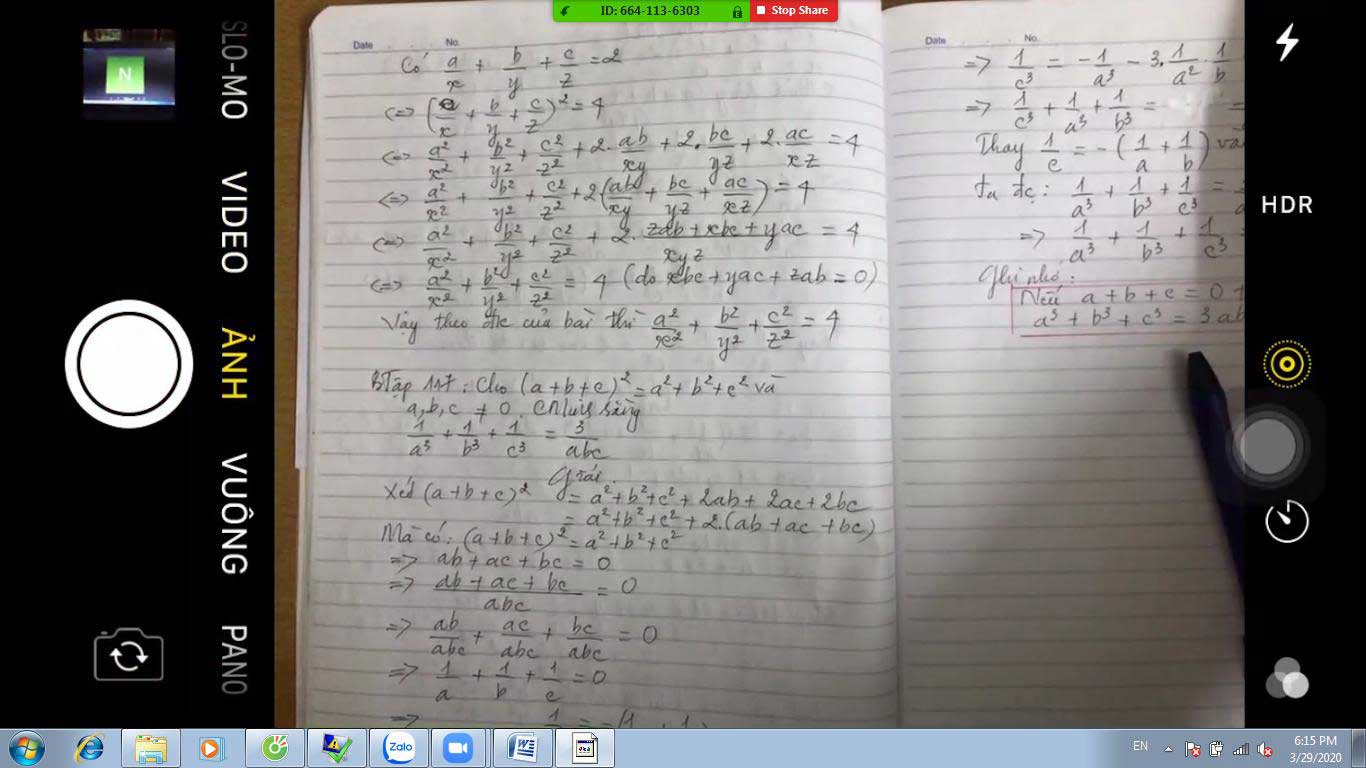 ID: 664-113-6303
Stop Share
SLO-MO
VIDEO
ẢNH
VUÔNG
PANO
N
HDR
Date No.
Có a/x + b/y + c/z = 2
<=> (a/x + b/y + c/z)² = 4
<=> a²/x² + b²/y² + c²/z² + 2.ab/xy + 2.bc/yz + 2.ac/xz = 4
<=> a²/x² + b²/y² + c²/z² + 2(ab/xy + bc/yz + ac/xz) = 4
<=> a²/x² + b²/y² + c²/z² + 2.(zab + xbc + yac)/xyz = 4
<=> a²/x² + b²/y² + c²/z² = 4 (do xbc + yac + zab = 0)
Vậy theo đk của bài thì a²/x² + b²/y² + c²/z² = 4
BTập 117: Cho (a+b+c)² = a² + b² + c² và
a, b, c ≠ 0. CMinh rằng
1/a³ + 1/b³ + 1/c³ = 3/abc
Giải.
Xét (a+b+c)² = a² + b² + c² + 2ab + 2ac + 2bc
= a² + b² + c² + 2.(ab + ac + bc)
Mà có: (a+b+c)² = a² + b² + c²
=> ab + ac + bc = 0
=> (ab + ac + bc)/abc = 0
=> ab/abc + ac/abc + bc/abc = 0
=> 1/a + 1/b + 1/c = 0
=>
Date No.
=> 1/c³ = -1/a³ - 3.1/a².1/b
=> 1/c³ + 1/a³ + 1/b³ =
Thay 1/c = -(1/a + 1/b) và
ta đc: 1/a³ + 1/b³ + 1/c³ =
=> 1/a³ + 1/b³ + 1/c³
Ghi nhớ:
Nếu a + b + c = 0
a³ + b³ + c³ = 3ab
Zalo
EN
6:15 PM
3/29/2020